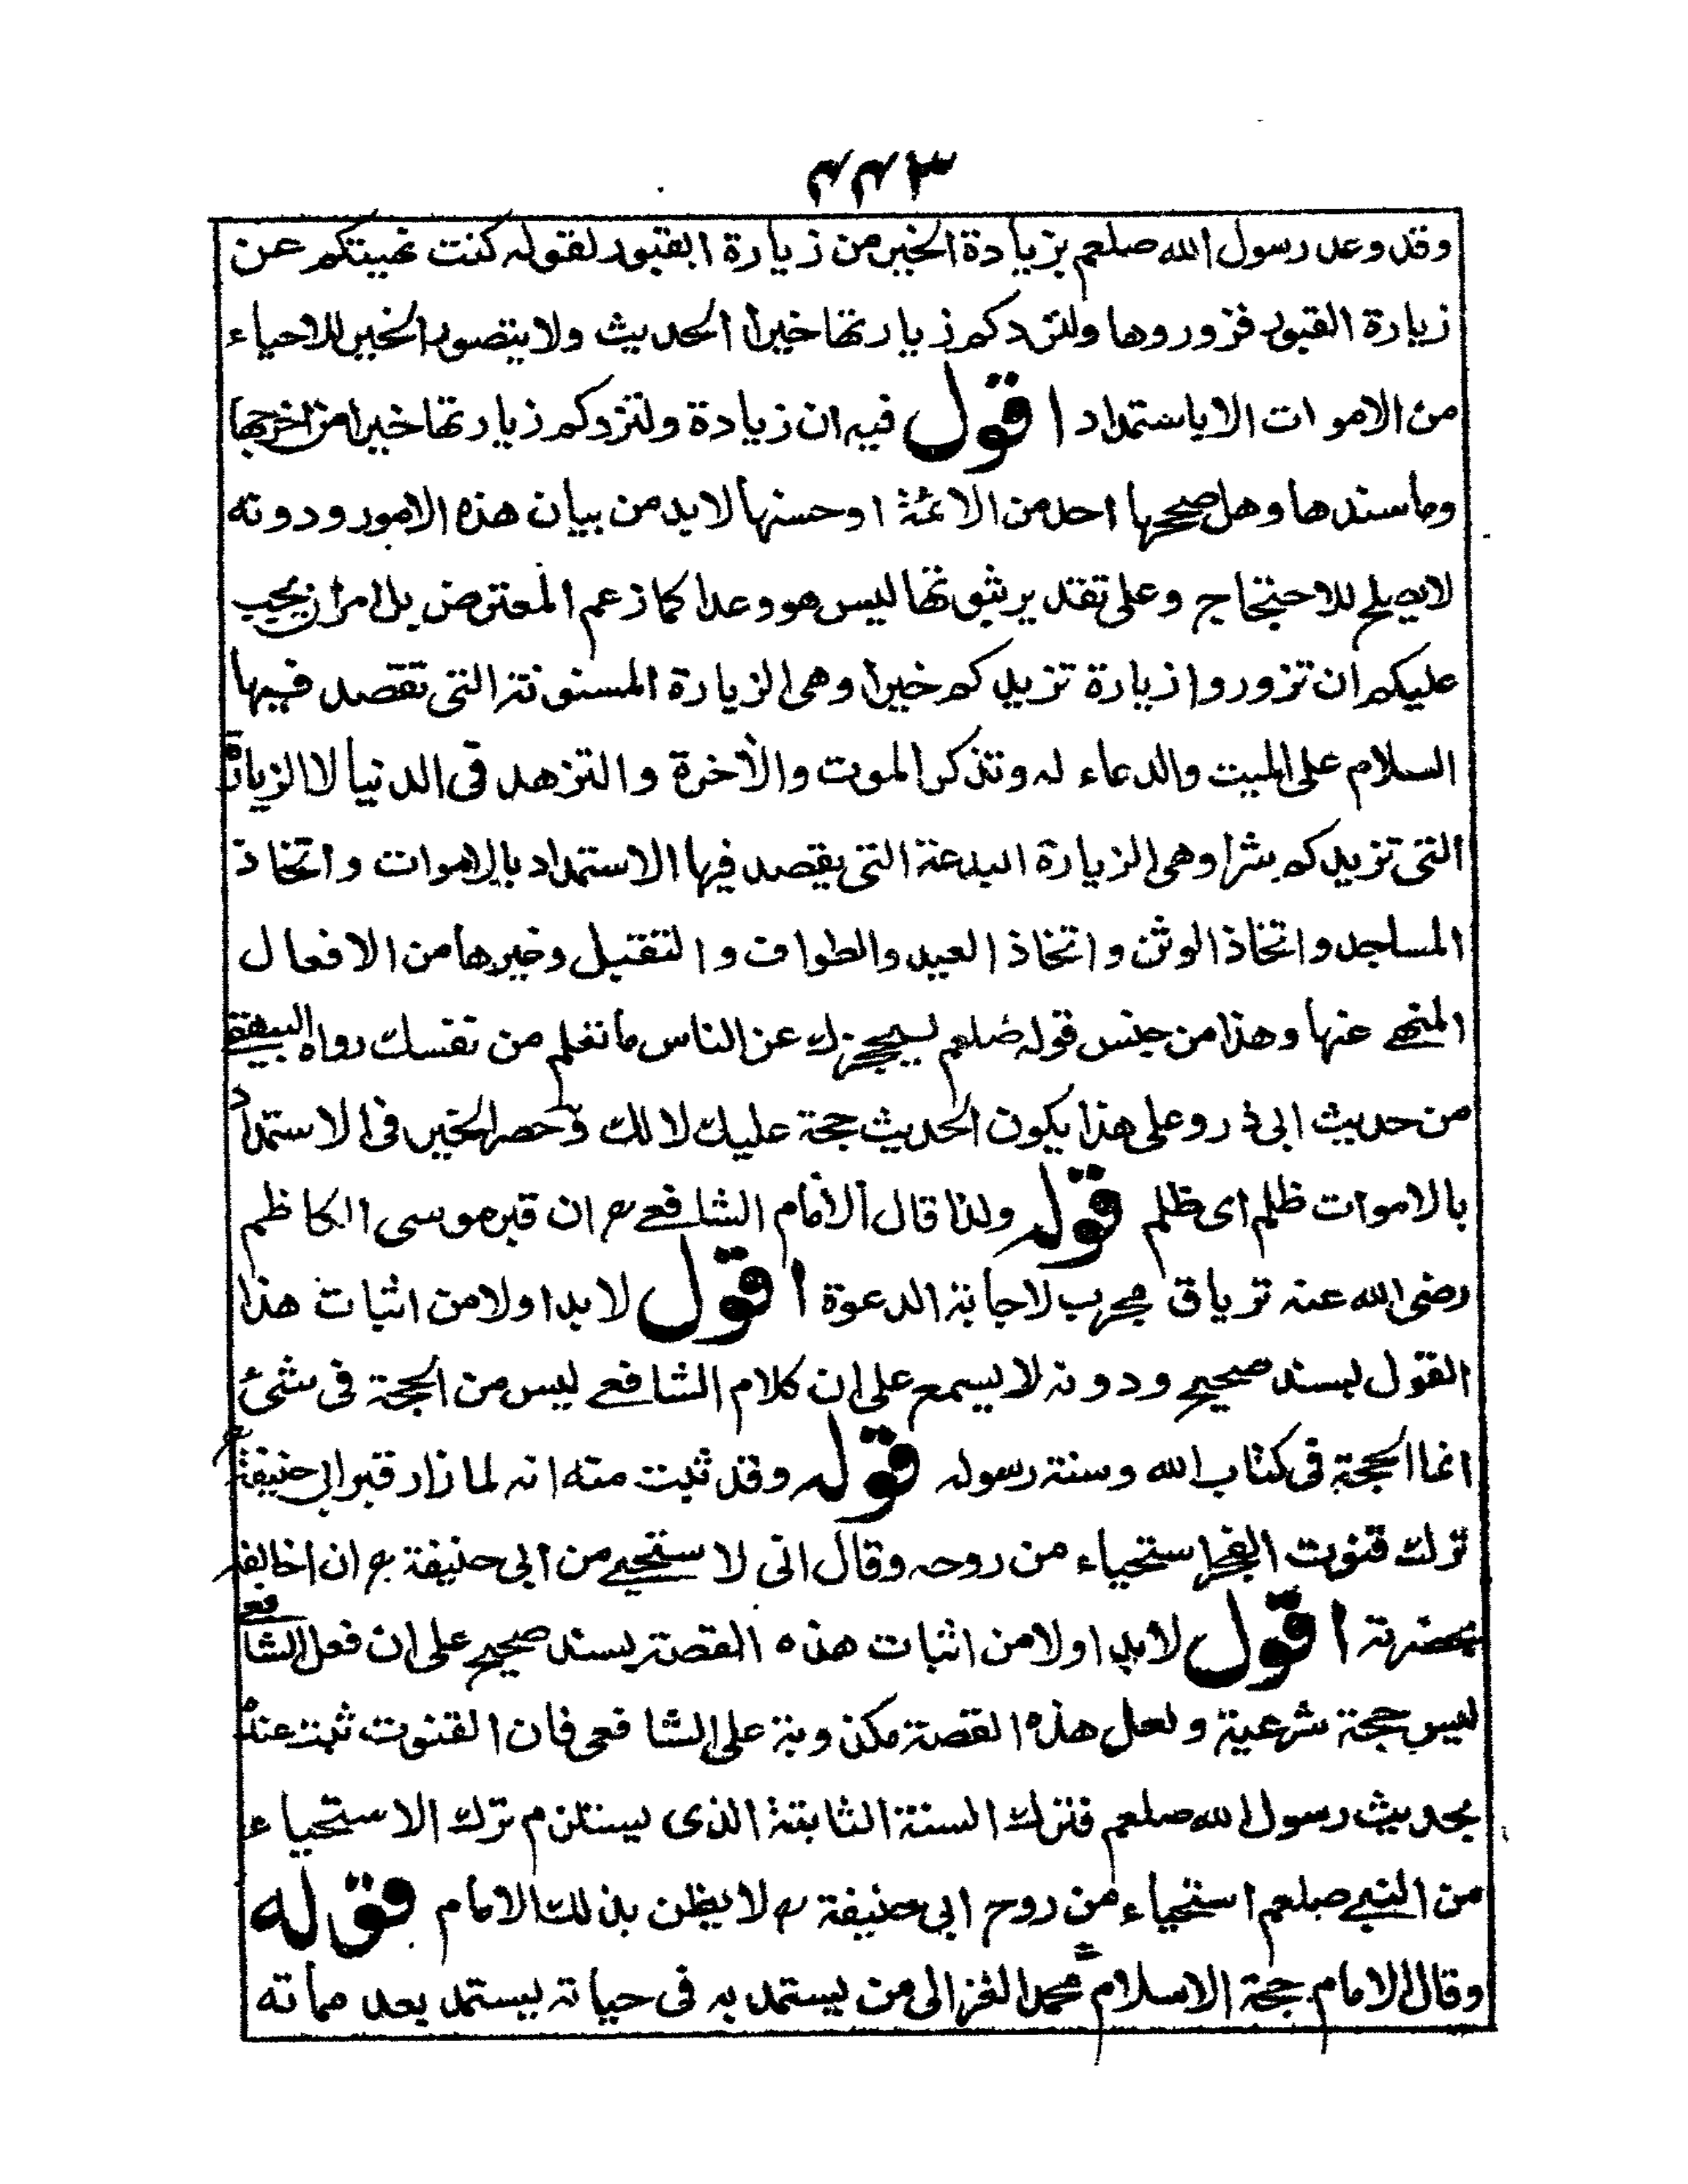 ٣٤٤
وقد وعد رسول الله صلعم بزيادة الخير من زيارة القبور لقوله كنت نهيتكم عن
زيارة القبور فزوروها ولتزدكم زيارتها خيرا الحديث ولا يتصور الخير للاحياء
من الاموات الا باستمداد اقول فيه ان زيادة ولتزدكم زيارتها خيرا من اخرجها
وما سندها وهل صححها احد من الائمة او حسنها لا بد من بيان هذه الامور ودونه
لا يصلح للاحتجاج وعلى تقدير ثبوتها ليس هو وعدا كما زعم المعترض بل امر ان يجب
عليكم ان تزوروا زيارة تزيدكم خيرا وهى الزيارة المسنونة التى تقصد فيها
السلام على الميت والدعاء له وتذكر الموت والأخرة والتزهد فى الدنيا لا الزيارة
التى تزيدكم شرا وهى الزيارة البدعة التى يقصد فيها الاستمداد بالاموات واتخاذ
المساجد واتخاذ الوثن واتخاذ العيد والطواف والتقبيل وغيرها من الافعال
المنهى عنها وهذا من جنس قوله صلعم ليحجزك عن الناس ما تعلم من نفسك رواه البيهقى
من حديث ابى ذر وعلى هذا يكون الحديث حجة عليك لا لك وحصر الخير فى الاستمداد
بالاموات ظلم اى ظلم قوله ولذا قال الامام الشافعى رح ان قبر موسى الكاظم
رضى الله عنه ترياق مجرب لاجابة الدعوة اقول لا بد اولا من اثبات هذا
القول بسند صحيح ودونه لا يسمع على ان كلام الشافعى ليس من الحجة فى شئ
انما الحجة فى كتاب الله وسنة رسوله قوله وقد ثبت منه انه لما زار قبر ابى حنيفة رح
ترك قنوت الفجر استحياء من روحه وقال انى لاستحيى من ابى حنيفة رح ان اخالفه
بحضرته اقول لا بد اولا من اثبات هذه القصة بسند صحيح على ان فعل الشافعى
ليس حجة شرعية ولعل هذه القصة مكذوبة على الشافعى فان القنوت ثبت عنده
بحديث رسول الله صلعم فترك السنة الثابتة الذى يستلزم ترك الاستحياء
من النبى صلعم استحياء من روح ابى حنيفة رح لا يظن بذلك الامام قوله
وقال الامام حجة الاسلام محمد الغزالى من يستمد به فى حياته يستمد بعد مماته